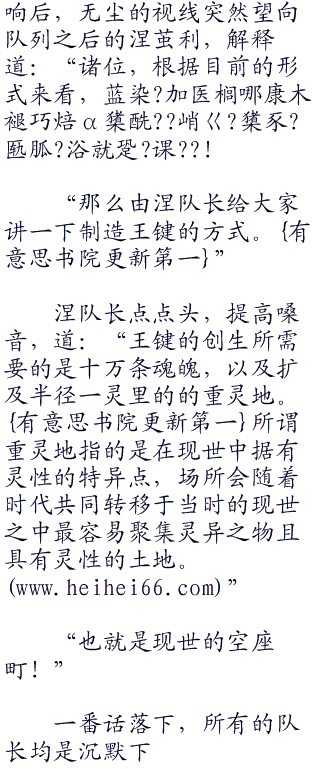 响后，无尘的视线突然望向
队列之后的涅茧利，解释
道：“诸位，根据目前的形
式来看，蓝染?加医榈哪康木
褪巧焙α㹇酰??峭巜?㹇豕?
匦胍?浴就跫?课??!
“那么由涅队长给大家
讲一下制造王键的方式。{有
意思书院更新第一}”
涅队长点点头，提高嗓
音，道：“王键的创生所需
要的是十万条魂魄，以及扩
及半径一灵里的的重灵地。
{有意思书院更新第一}所谓
重灵地指的是在现世中据有
灵性的特异点，场所会随着
时代共同转移于当时的现世
之中最容易聚集灵异之物且
具有灵性的土地。
(www.heihei66.com)”
“也就是现世的空座
町！”
一番话落下，所有的队
长均是沉默下